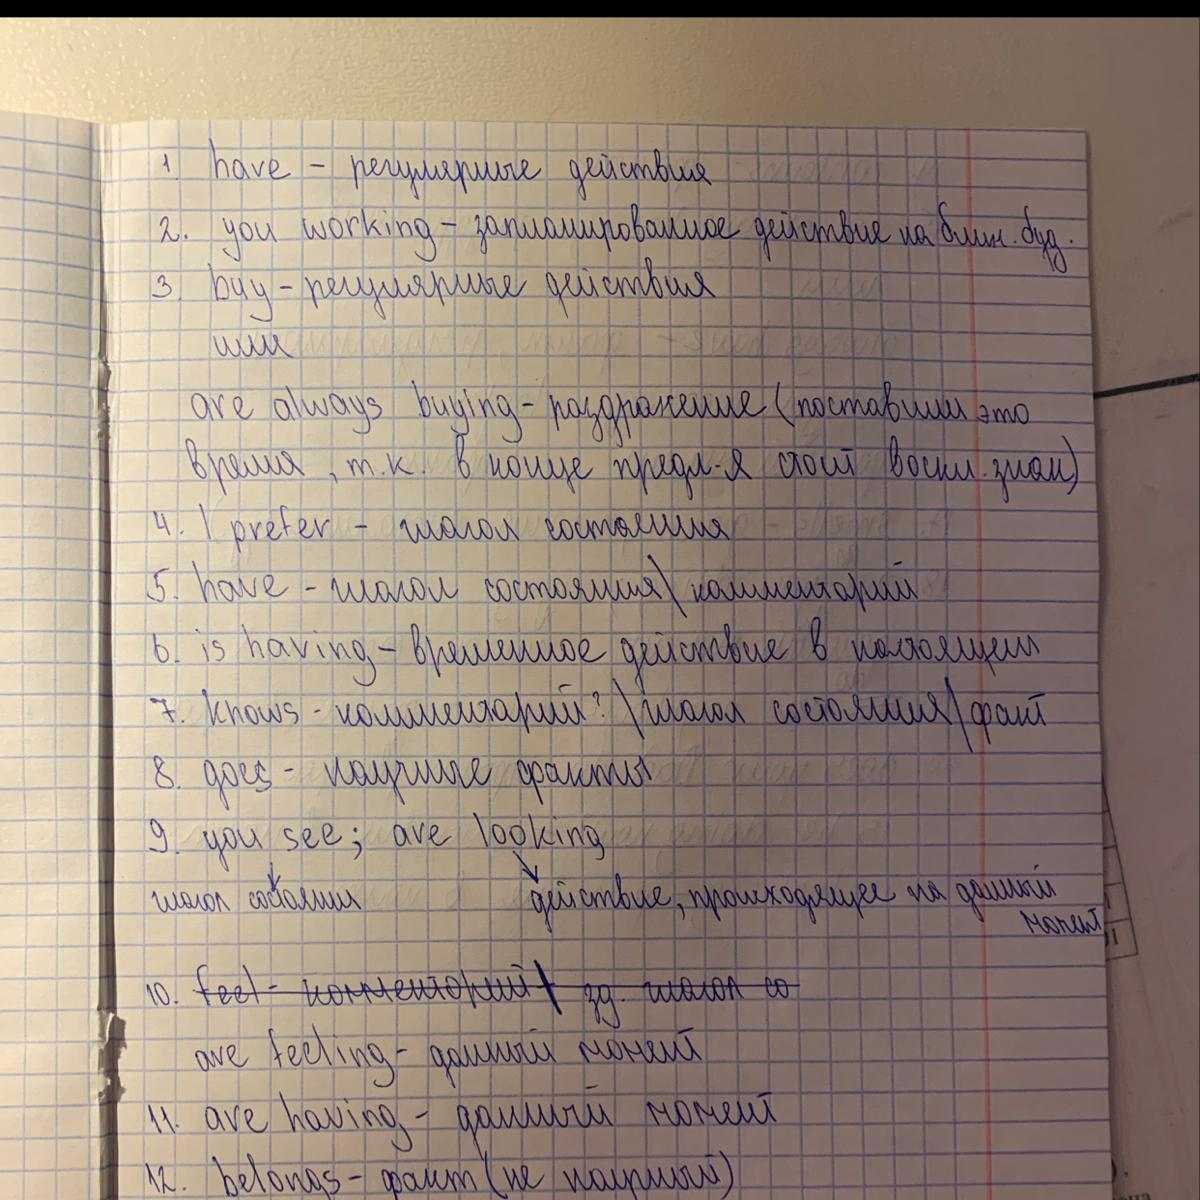 1. have - регулярные действия
2. you working - запланированное действие на ближ. буд.
3. buy - регулярные действия
или
are always buying - раздражение (поставили это
время, т.к. в конце предл-я стоит воскл. знак)
4. I prefer - глагол состояния
5. have - глагол состояния\комментарий
6. is having - временное действие в настоящем
7. knows - комментарий?\глагол состояния\факт
8. goes - научные факты
9. you see; are looking
глагол состояния действие, происходящее на данный
момент
10. feel - комментарий\ зд. глагол со
are feeling - данный момент
11. are having - данный момент
12. belongs - факт (не научный)